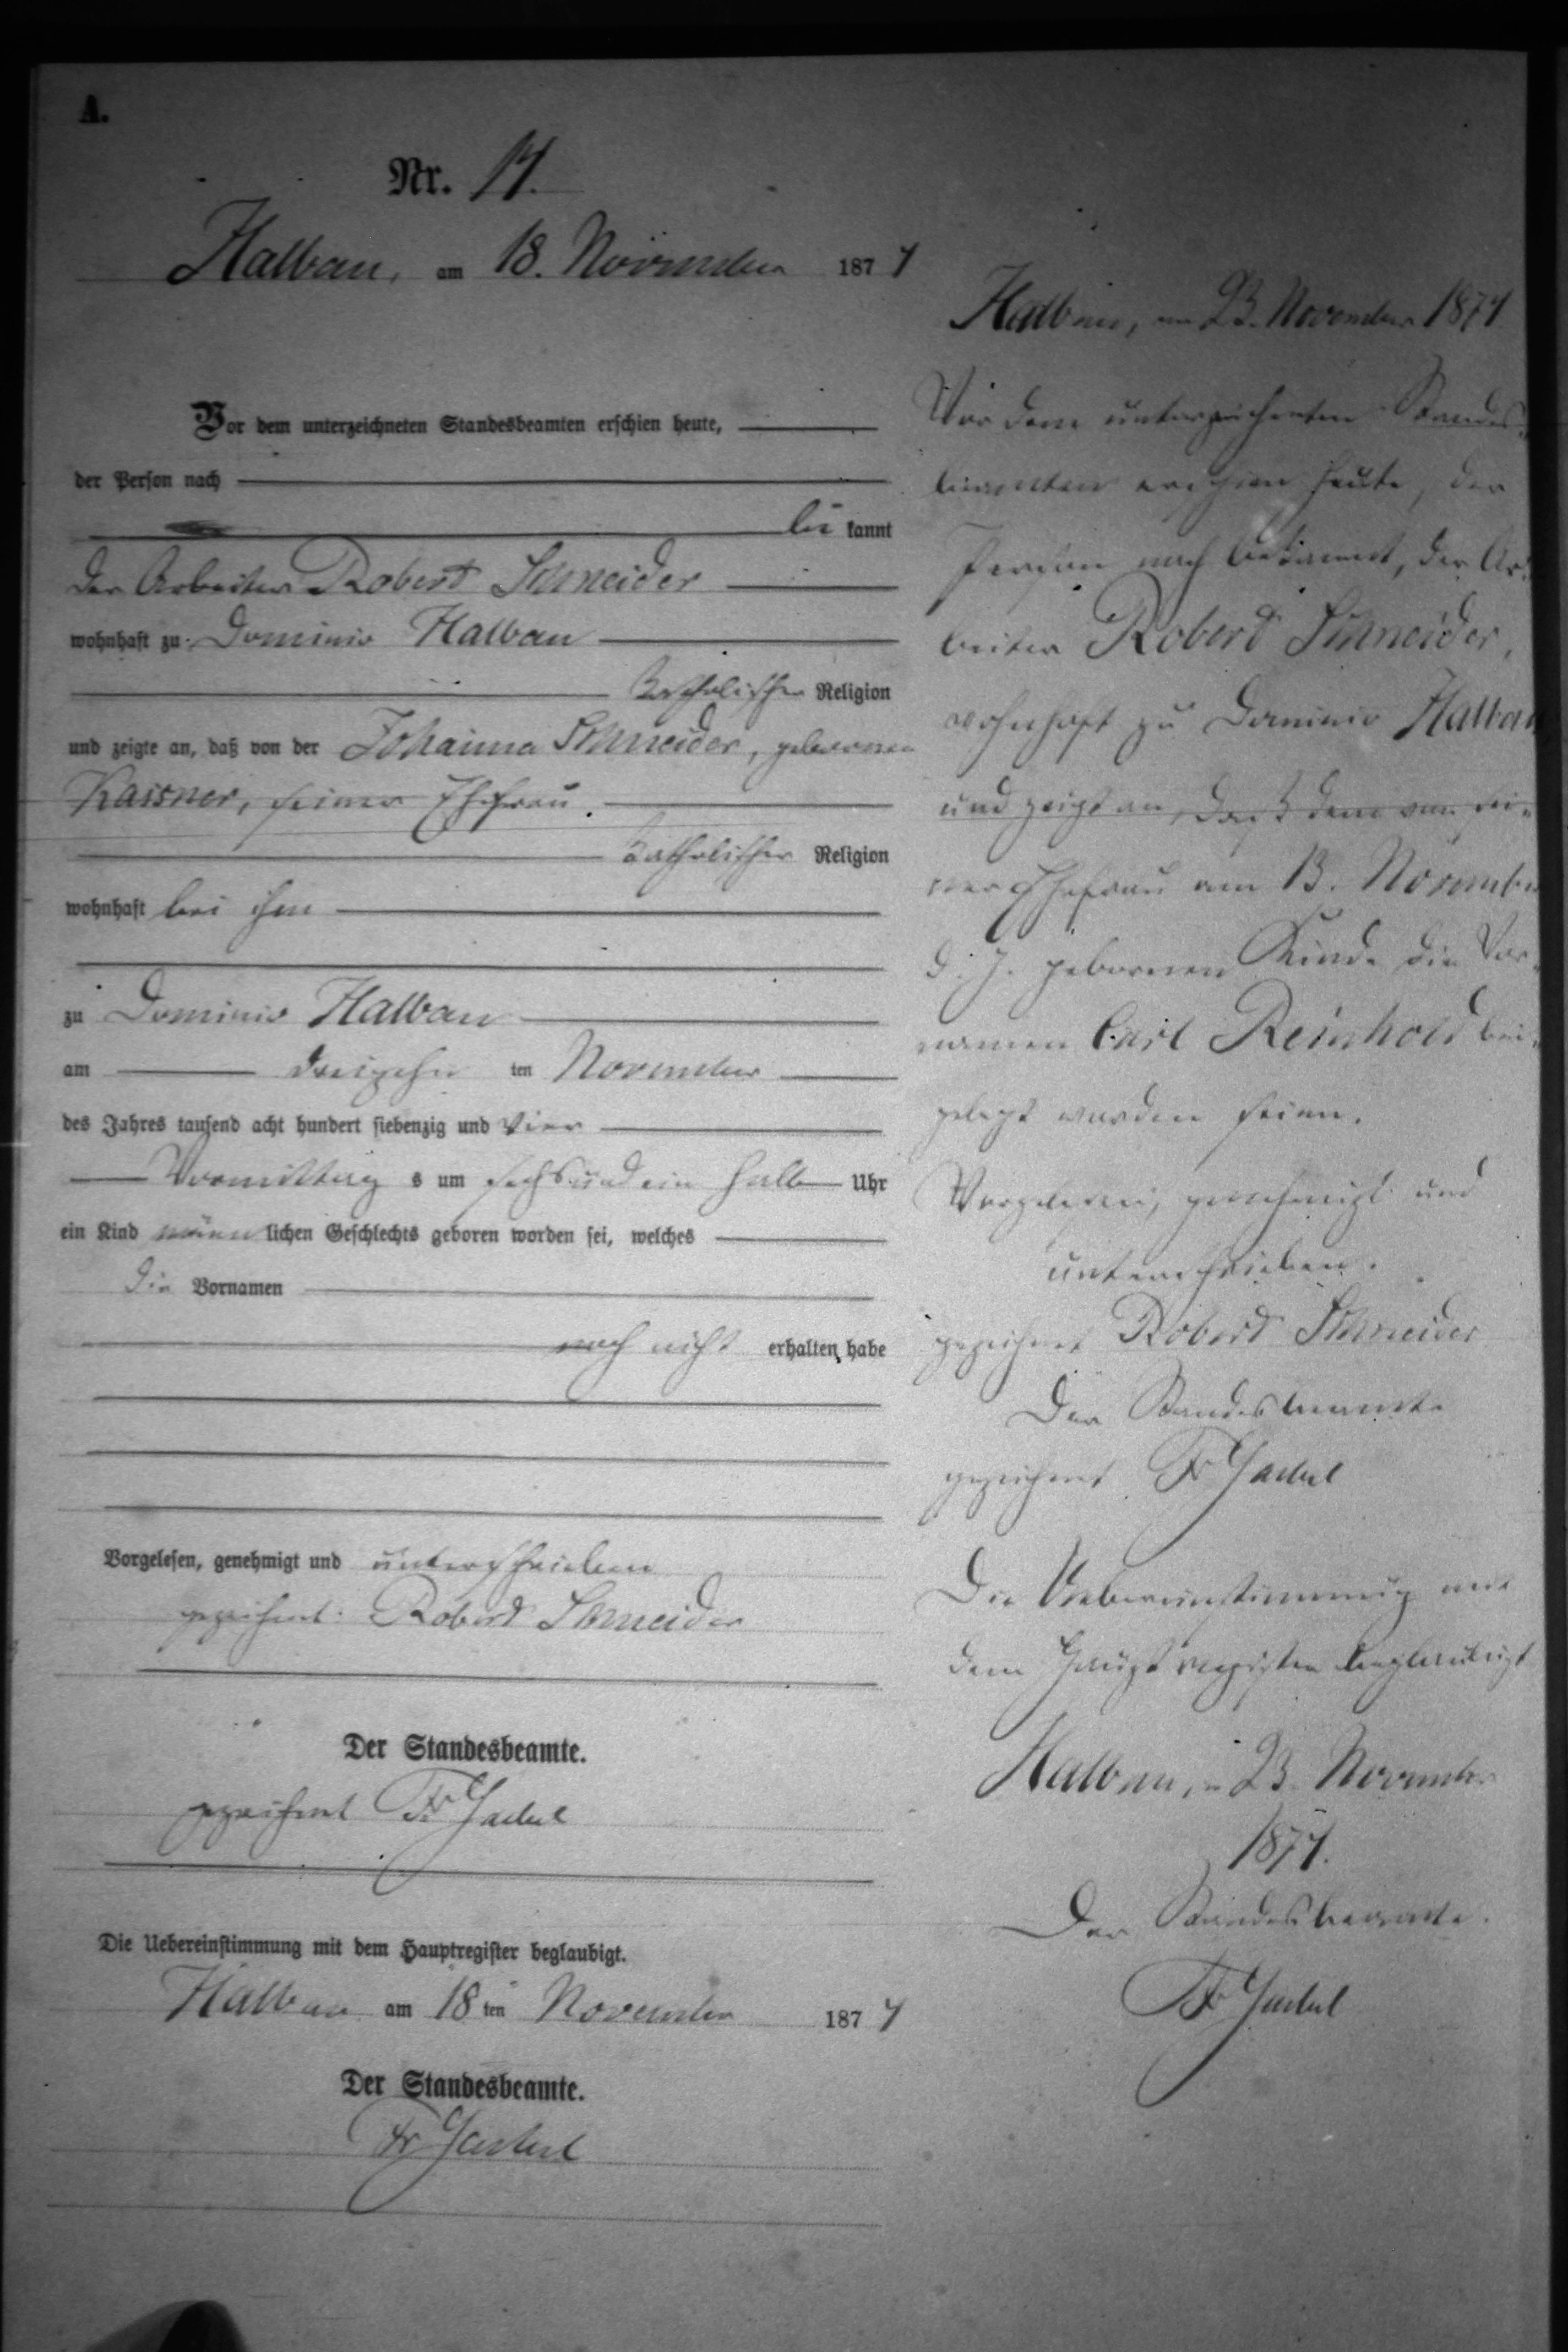 A.
Nr. 14.
Halbau, am 18. November 1874
Vor dem unterzeichneten Standesbeamten erschien heute,
der Person nach
be kannt
der Arbeiter Robert Schneider
wohnhaft zu Dominio Halbau
katholischer Religion
und zeigte an, daß von der Johanna Schneider, gebornen
Kassner, seiner Ehefrau.
katholischer Religion
wohnhaft bei ihm
zu Dominio Halbau
am dreizehn ten November
des Jahres tausend acht hundert siebenzig und vier
Vormittag s um sechs und ein halb Uhr
ein Kind männ lichen Geschlechts geboren worden sei, welches
die Vornamen
noch nicht erhalten habe
Vorgelesen, genehmigt und unterschrieben
gezeichnet: Robert Schneider
Der Standesbeamte.
gezeichnet Fr
Die Uebereinstimmung mit dem Hauptregister beglaubigt.
Halbau am 18 ten November 1874
Der Standesbeamte.
Fr
Halbau, am 23. November 1874
Vor dem unterzeichneten Standes-
beamten erschien heute, der
Person nach bekannt, der Ar-
beiter Robert Schneider,
wohnhaft zu Dominio Halbau
und zeigt an, daß dem von sei-
ner Ehefrau am 13. November
d. J. gebornen Kinde die Vor-
namen Carl Reinhold bei-
gelegt worden seien.
Vorgelesen, genehmigt und
unterschrieben.
gezeichnet Robert Schneider
Der Standesbeamte
gezeichnet Fr
Die Uebereinstimmung mit
dem Hauptregister beglaubigt
Halbau, am 23. November
1874.
Der Standesbeamte.
Fr